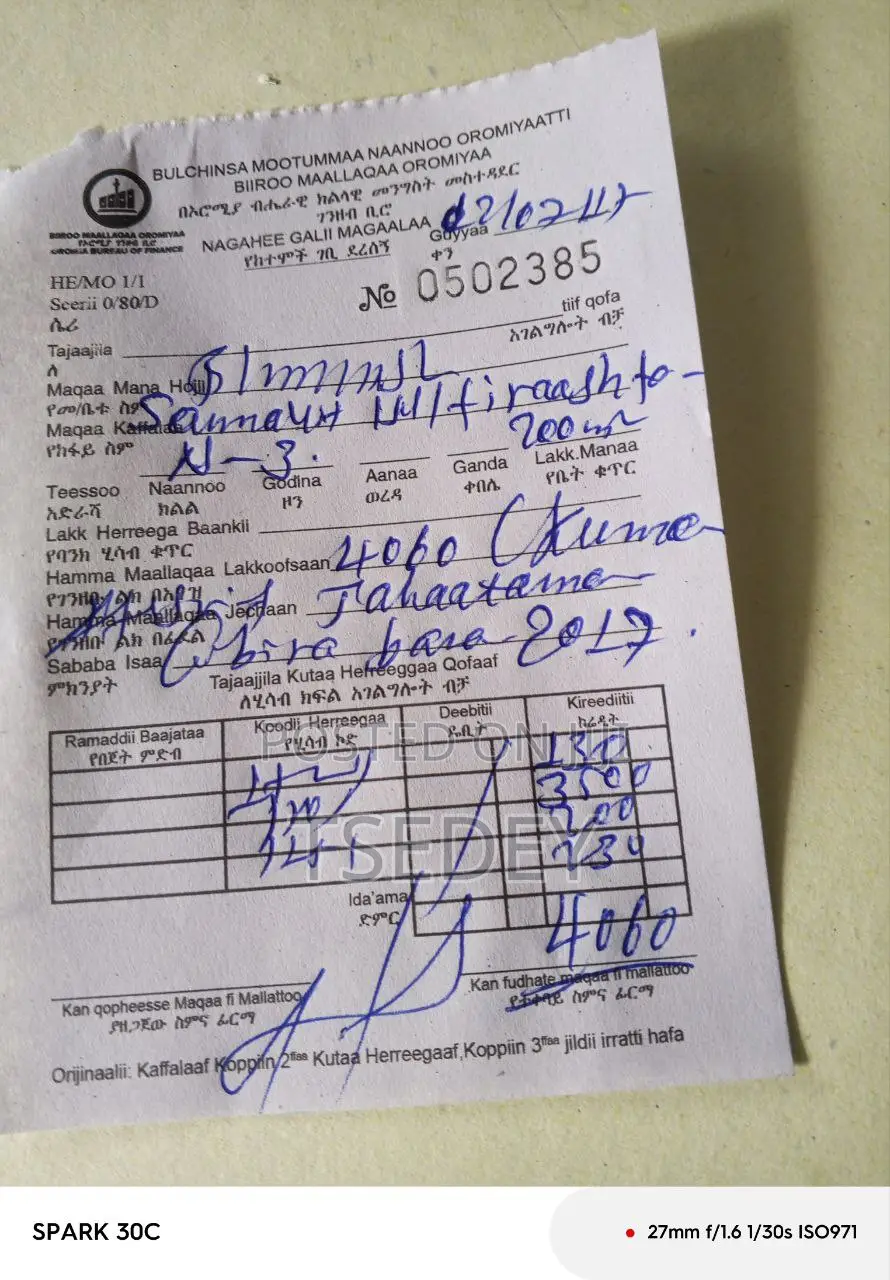 BULCHINSA MOOTUMMAA NAANNOO OROMIYAATTI
BIIROO MAALLAQAA OROMIYAA
በኦሮሚያ ብሔራዊ ክልላዊ መንግስት መስተዳደር
ገንዘብ ቢሮ
BIIROO MAALLAQAA OROMIYAA
የኦሮሚያ ገንዘብ ቢሮ
OROMIA BUREAU OF FINANCE
NAGAHEE GALII MAGAALAA
Guyyaa
የከተሞች ገቢ ደረሰኝ
ቀን
HE/MO 1/1
Seerii 0/80/D
ሴሪ
№ 0502385
tiif qofa
አገልግሎት ብቻ
Tajaajila
ለ
Maqaa Mana Hojii
የመ/ቤቱ ስም
Maqaa Kaffalaa
የከፋይ ስም
N-3.
Teessoo Naannoo Godina Aanaa Ganda Lakk.Manaa
አድራሻ ክልል ዞን ወረዳ ቀበሌ የቤት ቁጥር
Lakk Herreega Baankii
የባንክ ሂሳብ ቁጥር
Hamma Maallaqaa Lakkoofsaan 4060 (Kuma
የገንዘቡ ልክ በአኃዝ
Hamma Maallaqaa Jechaan
የገንዘቡ ልክ በፊደል
Sababa Isaa bira bara 2017.
ምክንያት
Tajaajjila Kutaa Herreeggaa Qofaaf
ለሂሳብ ክፍል አገልግሎት ብቻ
Ramaddii Baajataa Koodii Herreegaa Deebitii Kireediitii
የበጀት ምድብ የሂሳብ ኮድ ዴቢት ክሬዲት
130
3500
200
POSTED ON
TSEDEY
Ida'ama
ድምር
4060
Kan qopheesse Maqaa fi Mallattoo
ያዘጋጀው ስምና ፊርማ
Kan fudhate maqaa fi mallattoo
ስምና ፊርማ
Orijinaalii: Kaffalaaf Koppiin 2ffaa Kutaa Herreegaaf,Koppiin 3ffaa jildii irratti hafa
SPARK 30C
27mm f/1.6 1/30s ISO971